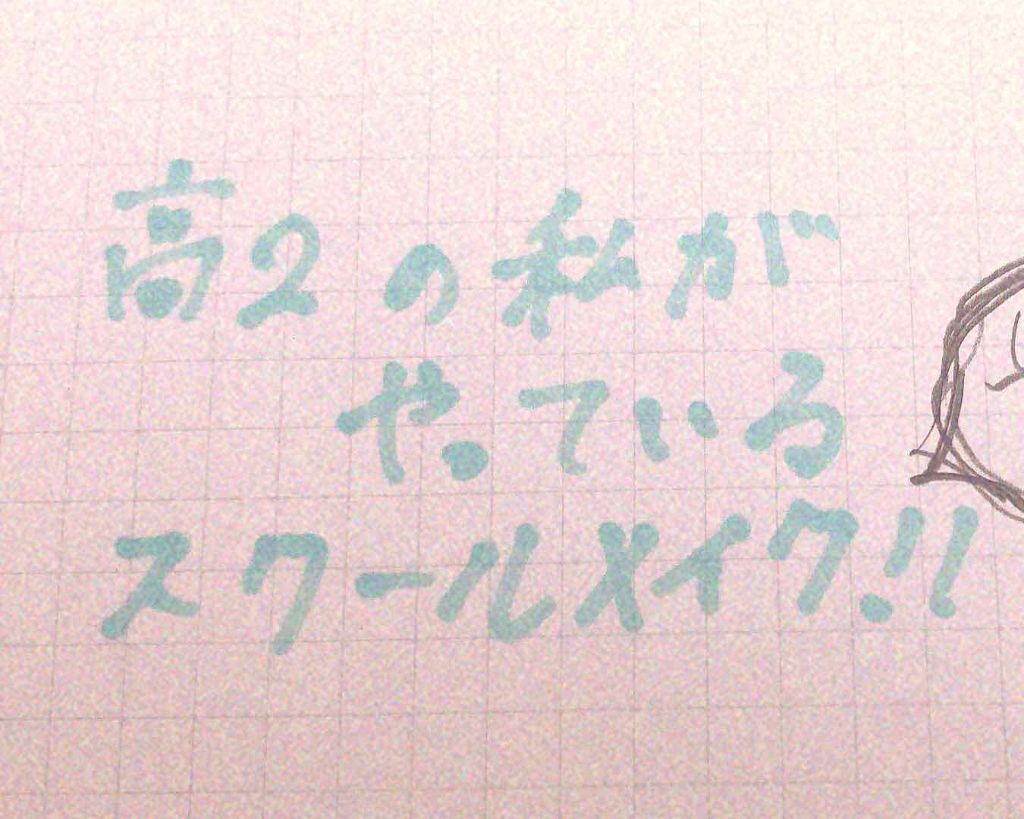 高2の私が
やっている
スクールメイク!!